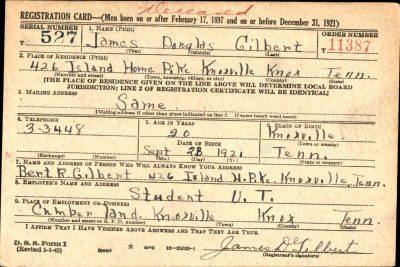 Deceased
REGISTRATION CARD—(Men born on or after February 17, 1897 and on or before December 31, 1921)
SERIAL NUMBER 1. NAME (Print) ORDER NUMBER
527 James Douglas Gilbert 11387
(First) (Middle) (Last)
2. PLACE OF RESIDENCE (Print)
426 Island Home Pike Knoxville Knox Tenn.
(Number and street) (Town, township, village, or city) (County) (State)
[THE PLACE OF RESIDENCE GIVEN ON THE LINE ABOVE WILL DETERMINE LOCAL BOARD
JURISDICTION; LINE 2 OF REGISTRATION CERTIFICATE WILL BE IDENTICAL]
3. MAILING ADDRESS
Same
[Mailing address if other than place indicated on line 2. If same insert word same]
4. TELEPHONE 5. AGE IN YEARS 6. PLACE OF BIRTH
3-3448 20 Knoxville
DATE OF BIRTH (Town or county)
Sept 28 1921 Tenn.
(Exchange) (Number) (Mo.) (Day) (Yr.) (State or country)
7. NAME AND ADDRESS OF PERSON WHO WILL ALWAYS KNOW YOUR ADDRESS
Bert R. Gilbert 426 Island H. Pike. Knoxville, Tenn.
8. EMPLOYER'S NAME AND ADDRESS
Student U. T.
9. PLACE OF EMPLOYMENT OR BUSINESS
Cumberland. Knoxville Knox Tenn
(Number and street or R. F. D. number) (Town) (County) (State)
I AFFIRM THAT I HAVE VERIFIED ABOVE ANSWERS AND THAT THEY ARE TRUE.
D. S. S. Form 1
(Revised 1-1-42) (over) James D Gilbert
(Registrant's signature)